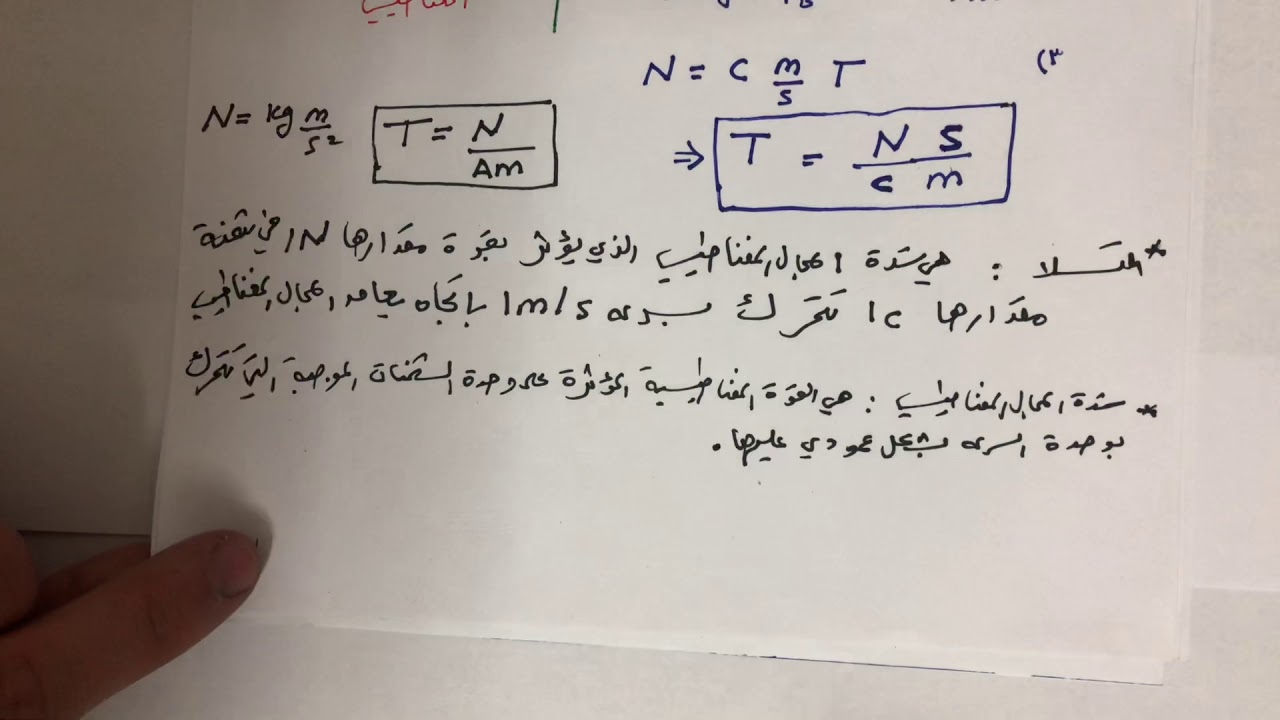 المغناطيسي
٣)
N = C m/s T
⇒ T = N S / C m
N = kg m/s²
T = N / Am
* التسلا : هي شدة المجال المغناطيسي الذي يؤثر بقوة مقدارها 1N في شحنة
مقدارها 1C تتحرك بسرعة 1m/s باتجاه يعامد المجال المغناطيسي
* شدة المجال المغناطيسي : هي القوة المغناطيسية المؤثرة على وحدة الشحنات الموجبة التي تتحرك
بوحدة السرعة بشكل عمودي عليها .